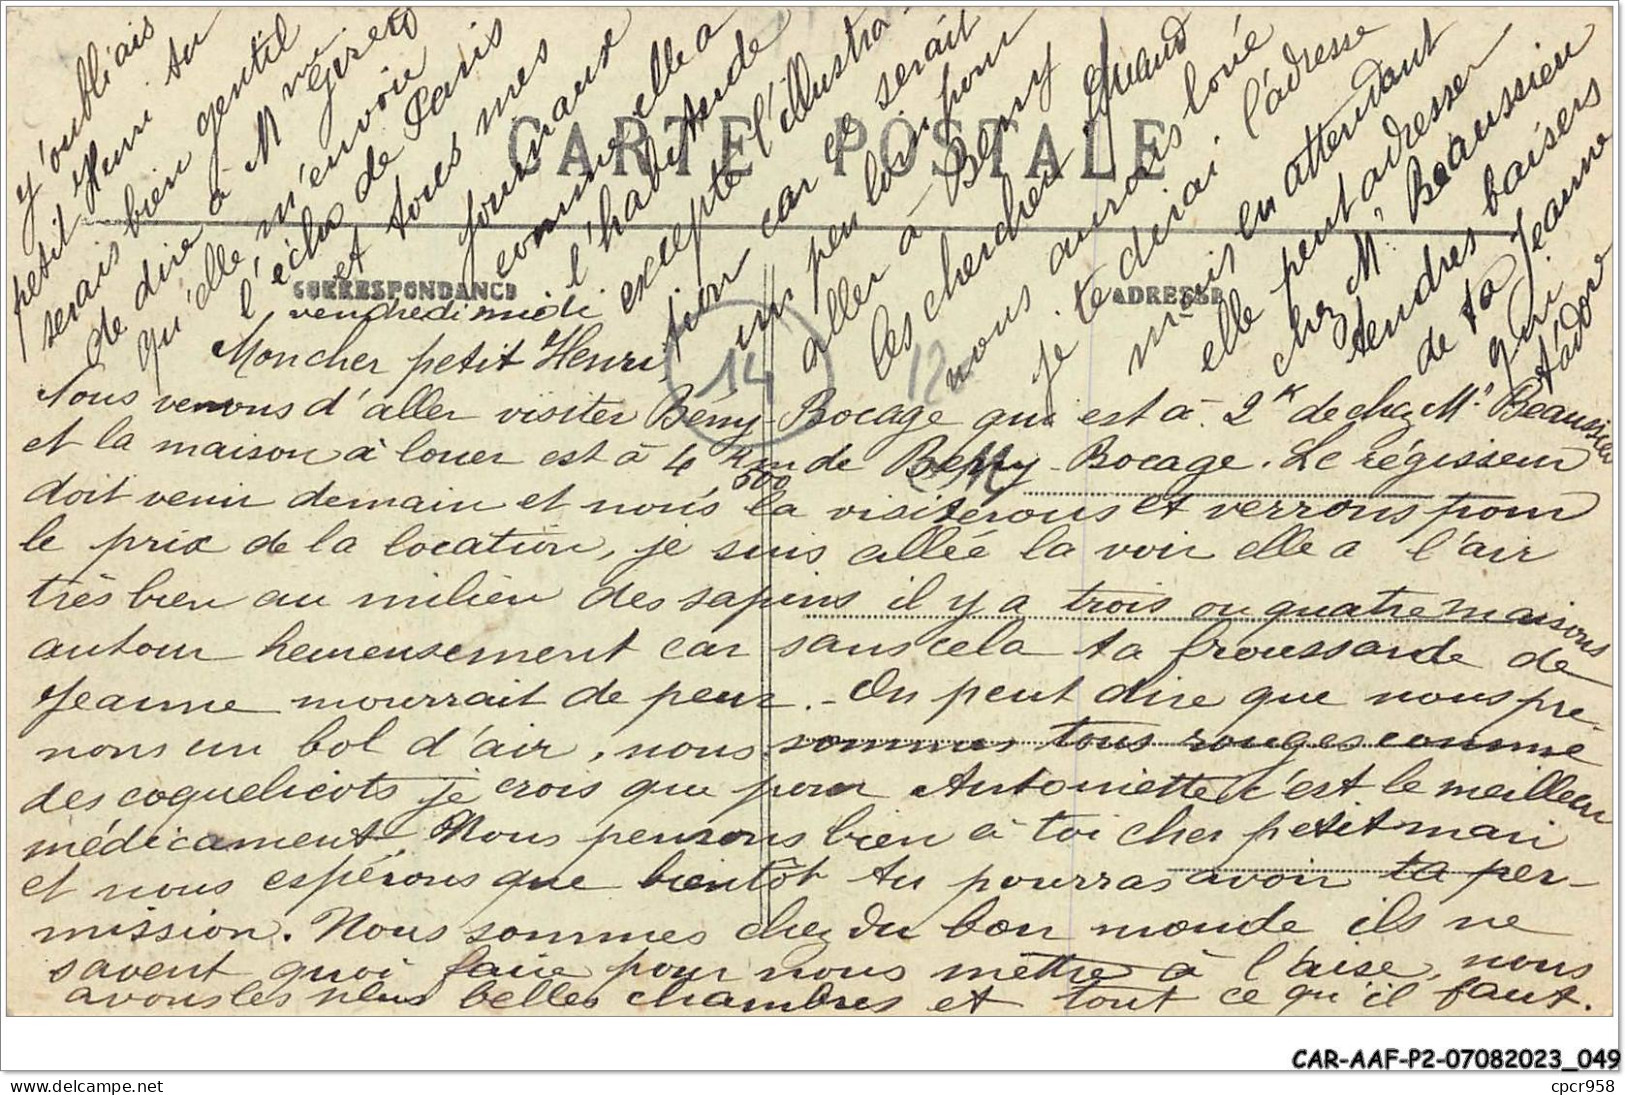 CARTE POSTALE
CORRESPONDANCE
ADRESSE
14
12
vendredi midi
Mon cher petit Henri,
Nous venons d'aller visiter Bény-Bocage qui est à 2 k de chez Mr Beaussieu
et la maison à louer est à 4 km 500 de Bény-Bocage. Le régisseur
doit venir demain et nous la visiterons et verrons pour
le prix de la location, je suis allée la voir elle a l'air
très bien au milieu des sapins il y a trois ou quatre maisons
autour heureusement car sans cela ta froussarde de
Jeanne mourrait de peur. - On peut dire que nous pre-
nons un bol d'air, nous sommes tous rouges comme
des coquelicots je crois que pour Antoinette c'est le meilleur
médicament. Nous pensons bien à toi cher petit mari
et nous espérons que bientôt tu pourras avoir ta per-
mission. Nous sommes chez du bon monde ils ne
savent quoi faire pour nous mettre à l'aise, nous
avons les plus belles chambres et tout ce qu'il faut.
j'oubliais
petit Henri tu
serais bien gentil
de dire à Mme
qu'elle m'envoie
l'écho de Paris
et tous mes
journaux
comme elle a
l'habitude
excepté l'illustra-
tion car ce serait
un peu loin pour
aller à Bény
les chercher Quand
nous aurons loué
je te dirai l'adresse
mais en attendant
elle peut adresser
chez Mr Beaussieu
tendres baisers
de ta Jeanne
qui
t'adore
CAR-AAF-P2-07082023_049
delcampe.net
cpcr958